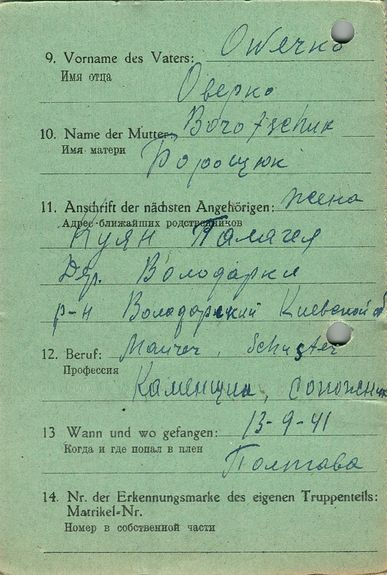 9. Vorname des Vaters: Owerko
Имя отца
Оверко
10. Name der Mutter: Borotschuk
Имя матери
Борощюк
11. Anschrift der nächsten Angehörigen: жена
Адрес ближайших родственников
Куян Палагея
Дер. Володарки
р-н Володарский Киевской об
12. Beruf: Maurer, Schuster
Профессия
Каменщик, сопожник
13 Wann und wo gefangen: 13-9-41
Когда и где попал в плен
Полтава
14. Nr. der Erkennungsmarke des eigenen Truppenteils:
Matrikel-Nr.
Номер в собственной части